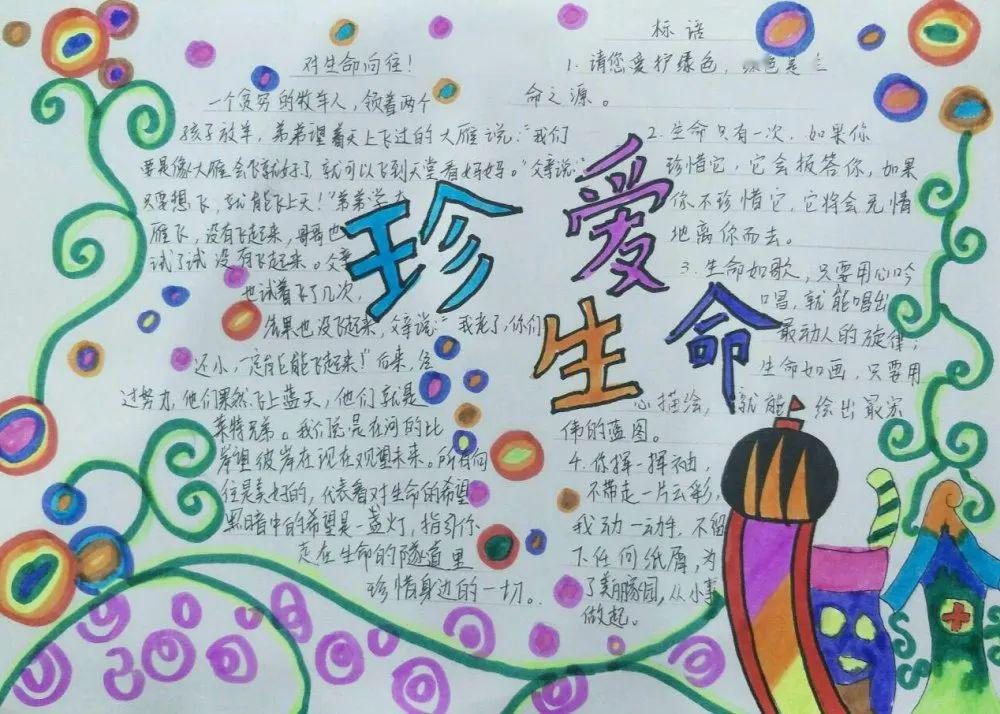 对生命向往!
一个贫穷的牧车人,领着两个
孩子放车,弟弟望着天上飞过的大雁说:“我们
要是像大雁会飞就好了,就可以飞到天堂看妈妈。”父亲说:“
只要想飞,就能飞上天!”弟弟学大
雁飞,没有飞起来,哥哥也
试了试没有飞起来。父亲
也试着飞了几次,
结果也没飞起来,父亲说:“我老了,你们
还小,一定能飞起来!”后来,
过努力,他们果然飞上蓝天,他们就是
莱特兄弟。我们总是在河的比
岸望彼岸在现在观望未来。所有向
往是美好的,代表着对生命的希望
黑暗中的希望是一盏灯,指引你
走在生命的隧道里
珍惜身边的一切。
珍
爱
生
命
标语
1.请您爱护绿色,绿色是生
命之源。
2.生命只有一次,如果你
珍惜它,它会报答你,如果
你不珍惜它,它将会无情
地离你而去。
3.生命如歌,只要用心吟
唱,就能唱出
最动人的旋律,
生命如画,只要用
心描绘,就能绘出最宏
伟的蓝图。
4.你挥一挥衣袖,
不带走一片云彩,
我动一动手,不留
下任何纸屑,为
了美丽家园,从小事
做起。